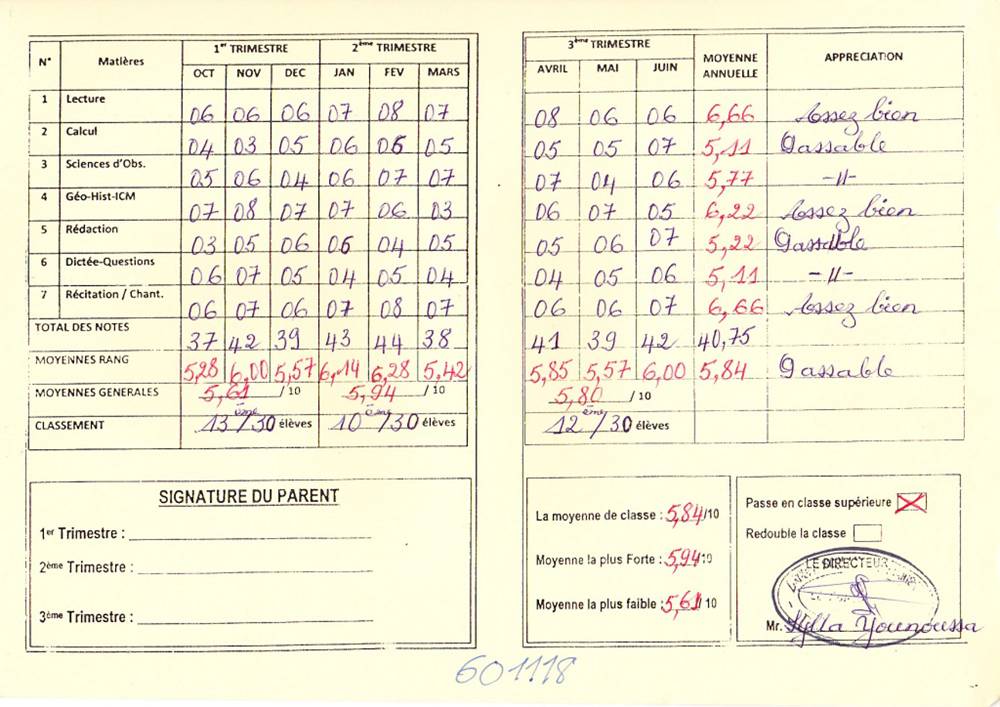 N° Matières 1er TRIMESTRE 2ème TRIMESTRE 3ème TRIMESTRE MOYENNE ANNUELLE APPRECIATION
OCT NOV DEC JAN FEV MARS AVRIL MAI JUIN
1 Lecture 06 06 06 07 08 07 08 06 06 6,66 Assez bien
2 Calcul 04 03 05 06 06 05 05 05 07 5,11 Passable
3 Sciences d'Obs. 05 06 04 06 07 07 07 04 06 5,77 -11-
4 Géo-Hist-ICM 07 08 07 07 06 03 06 07 05 6,22 Assez bien
5 Rédaction 03 05 06 06 04 05 05 06 07 5,22 Passable
6 Dictée-Questions 06 07 05 04 05 04 04 05 06 5,11 -11-
7 Récitation / Chant. 06 07 06 07 08 07 06 06 07 6,66 Assez bien
TOTAL DES NOTES 37 42 39 43 44 38 41 39 42 40,75
MOYENNES RANG 5,28 6,00 5,57 6,14 6,28 5,42 5,85 5,57 6,00 5,84 Passable
MOYENNES GENERALES 5,61 /10 5,94 /10 5,80 /10
CLASSEMENT 13ème/30 élèves 10ème/30 élèves 12ème/30 élèves
SIGNATURE DU PARENT
1er Trimestre :
2ème Trimestre :
3ème Trimestre :
La moyenne de classe : 5,84/10
Moyenne la plus Forte : 5,94/10
Moyenne la plus faible : 5,61/10
Passe en classe supérieure
Redouble la classe
LE DIRECTEUR
Mr. Sylla Younoussa
601118